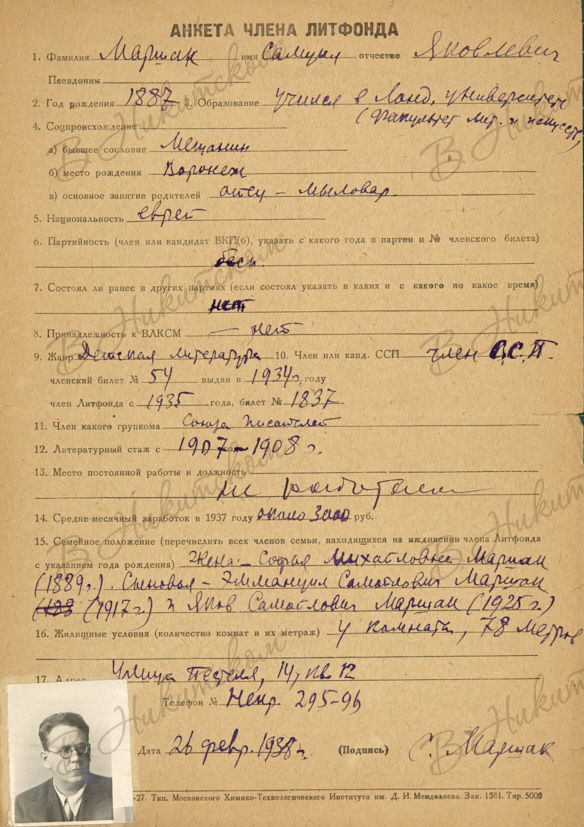 АНКЕТА ЧЛЕНА ЛИТФОНДА
1. Фамилия Маршак имя Самуил отчество Яковлевич
Псевдоним
2. Год рождения 1887 3. Образование учился в Лонд. университете
(факультет лит. и искусств)
4. Соцпроисхождение
а) бывшее сословие Мещанин
б) место рождения Воронеж
в) основное занятие родителей отец – мыловар.
5. Национальность еврей
6. Партийность (член или кандидат ВКП(б), указать с какого года в партии и № членского билета)
7. Состоял ли ранее в других партиях (если состоял указать в каких и с какого по какое время)
нет
8. Принадлежность к ВЛКСМ — нет
9. Жанр Детская литература 10. Член или канд. ССП член С.С.П.
членский билет № 54 выдан в 1934 г. году
член Литфонда с 1935 года, билет № 1837
11. Член какого групкома Союза писателей
12. Литературный стаж с 1907-1908 г.
13. Место постоянной работы и должность
14. Средне-месячный заработок в 1937 году около 3000 руб.
15. Семейное положение (перечислить всех членов семьи, находящихся на иждивении члена Литфонда
с указанием года рождения) Жена – Софья Михайловна Маршак
(1889 г.). Сыновья – Иммануил Самойлович Маршак
(1917 г.) и Яков Самойлович Маршак (1925 г.)
16. Жилищные условия (количество комнат и их метраж) 4 комнаты, 78 метров
17. Адрес Улица Пестеля, 14, кв. 12
Телефон № Некр. 295-96
Дата 26 февр. 1938 г. (Подпись) С. Маршак
-27. Тип. Московского Химико-Технологического Института им. Д. И. Менделеева. Зак. 1561. Тир. 5000
В. Никитском